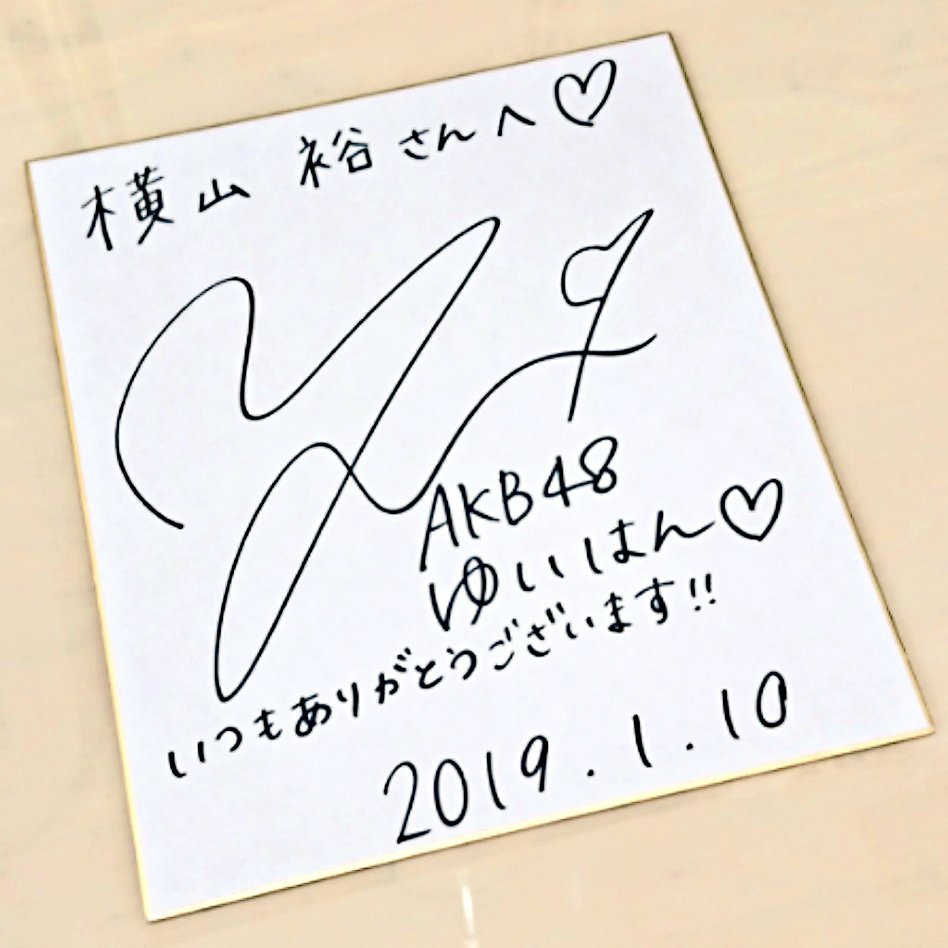 横山 裕さんへ♡
AKB48
ゆいはん♡
いつもありがとうございます!!
2019.1.10